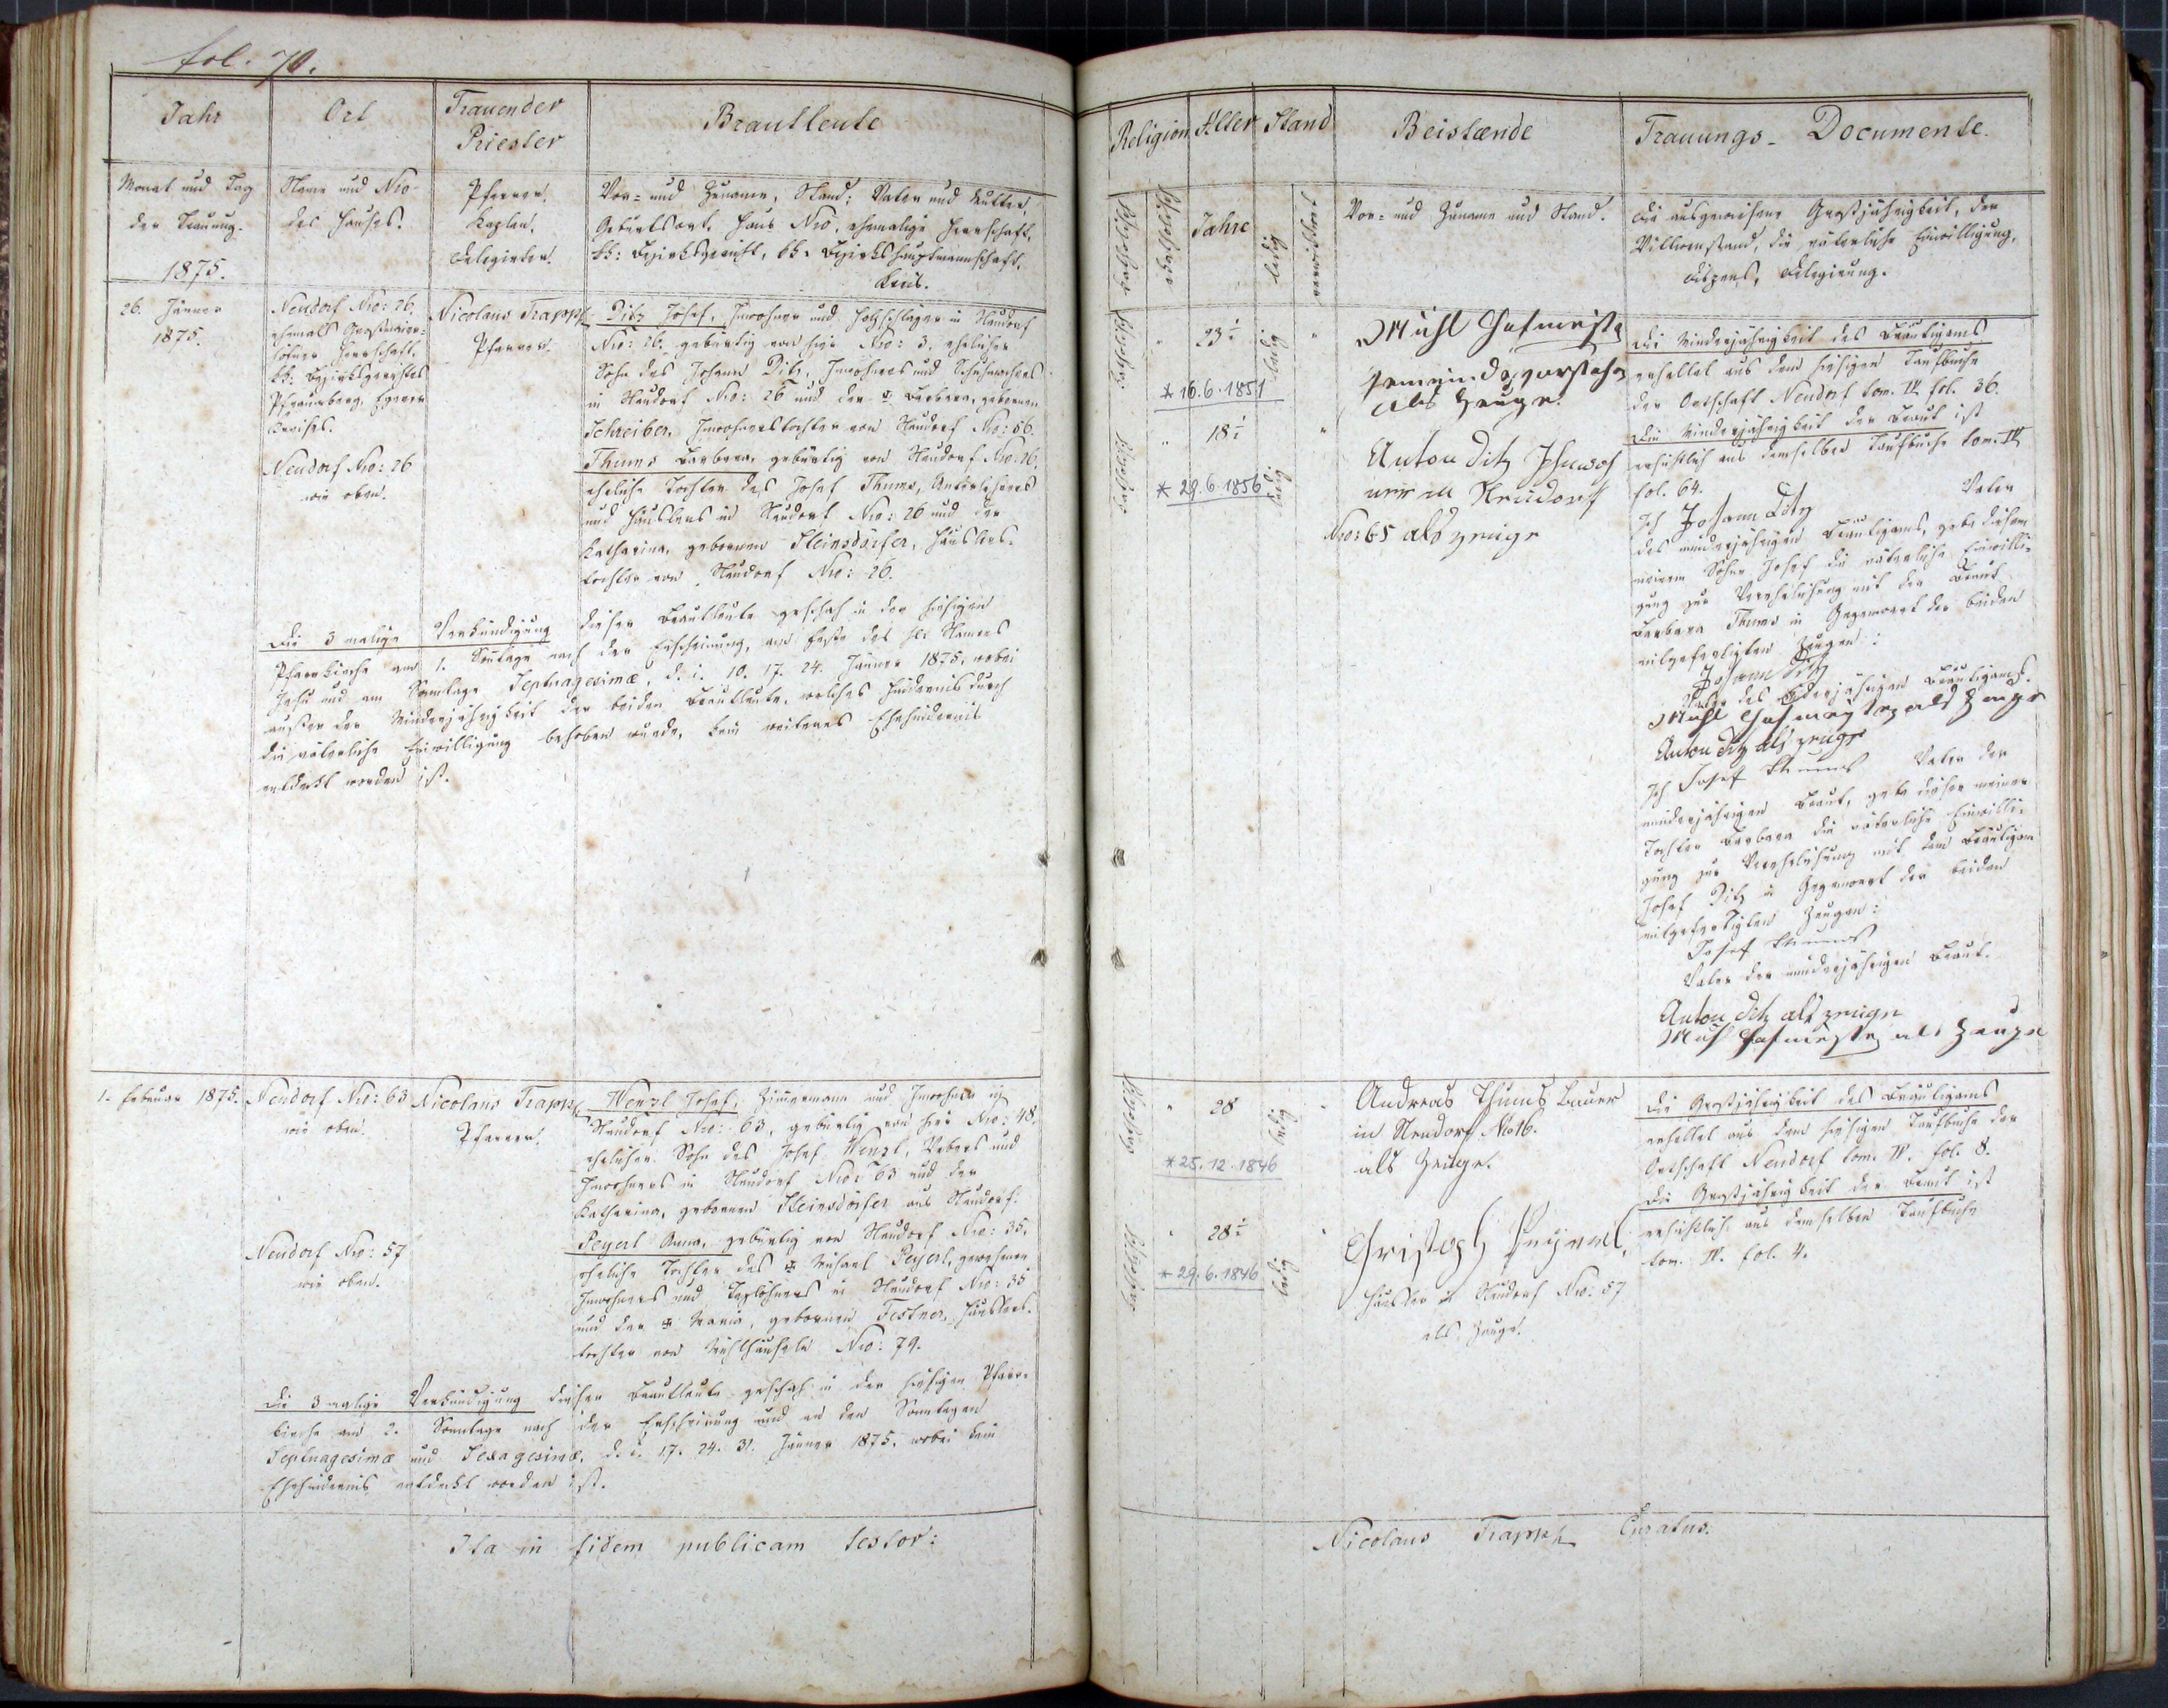 fol. 70.
Jahr
Ort
Trauender
Priester
Brautleute
Monat und Tag
der Trauung.
1875.
Name und Nro
des Hauses.
Pfarrer.
Kaplan.
Delegirter.
Vor- und Zuname, Stand: Vater und Mutter,
Geburtsort, Haus Nro, ehemalige Herrschaft,
kk: Bezirksgericht, kk: Bezirkshauptmannschaft,
Kreis.
26. Jänner
1875.
Neudorf Nro: 26.
ehemals Großmaier-
höfner Herrschaft,
kk: Bezirksgerichtes
Pfraumberg, Egerer
Kreises.
Neudorf Nro: 26
wie oben.
Nicolaus Trapp
Pfarrer.
Ditz Josef, Inwohner und Holzschläger in Neudorf
Nro: 26. gebürtig von hier Nro: 3. ehelicher
Sohn des Johann Ditz, Inwohners und Schuhmachers
in Neudorf Nro: 26 und der † Barbara, gebornen
Schreiber, Inwohnerstochter von Neudorf Nro: 56.
Thums Barbara, gebürtig von Neudorf Nro. 26.
eheliche Tochter des Josef Thums,
und Häuslers in Neudorf Nro: 26 und der
Katharina, gebornen Steinsdörfer, Häuslers-
tochter von Neudorf Nro: 26.
Die 3 malige Verkündigung dieser Brautleute geschah in der hiesigen
Pfarrkirche am 1. Sontage nach der Erscheinung, am Feste des sst Namens
Jesu und am Sonntage Septuagesimæ, d. i. 10. 17. 24. Jänner 1875, wobei
außer der Minderjährigkeit der beiden Brautleute, welches Hindernis durch
die väterliche Einwilligung behoben wurde, kein weiteres Ehehindernis
entdeckt worden ist.
1. Februar 1875.
Neudorf Nro: 63
wie oben.
Neudorf Nro: 57
wie oben.
Nicolaus Trapp
Pfarrer.
Wenzl Josef, Zimmermann und Inwohner in
Neudorf Nro: 63, gebürtig von hier Nro: 48.
ehelicher Sohn des Josef Wenzl, Webers und
Inwohners in Neudorf Nro: 63 und der
Katharina, gebornen Steinsdörfer aus Neudorf.
Peyerl Anna, gebürtig von Neudorf Nro: 35.
eheliche Tochter des † Michael Peyerl, gewesenen
Inwohners und Taglöhners in Neudorf Nro: 35
und der † Maria, gebornen Festner, Häuslers-
tochter von Mühlhäuseln Nro: 79.
Die 3 malige Verkündigung dieser Brautleute geschah in der hiesigen Pfarr-
kirche am 2. Sonntage nach der Erscheinung und an den Sonntagen
Septuagesimæ und Sexagesimæ, d. i. 17. 24. 31. Jänner 1875, wobei kein
Ehehindernis entdeckt worden ist.
Ita in fidem publicam testor:
Religion
Alter
Stand
Beistænde
Trauungs- Documente.
Jahre
ledig
verwittwet
Vor- und Zuname und Stand.
Die ausgewiesene Großjährigkeit, der
Wittwenstand, die väterliche Einwilligung,
Dispens, Delegirung.
katholisch
23 ½
* 16.6.1851
ledig
katholisch
18 ½
* 29.6.1856
ledig
Michl Hofmeister
Gemeindevorsteher
als Zeuge.
Anton Ditz Inwoh
ner in Neudorf
Nro: 65 als zeuge
Die Minderjährigkeit des Bräutigams
erhellet aus dem hiesigen Taufbuche
der Ortschaft Neudorf tom. IV. fol. 36.
Die Minderjährigkeit der Braut ist
ersichtlich aus demselben Taufbuche tom. IV
fol. 64.
Ich Johann Ditz Vater
des minderjährigen Bräutigams, gebe diesem
meinem Sohne Josef die väterliche Einwilli-
gung zur Verehelichung mit der Braut
Barbara Thums in Gegenwart der beiden
mitgefertigten Zeugen:
Johann Ditz
Vater des minderjährigen Bräutigams.
Michl Hofmeister als Zeuge
Anton Ditz als zeuge
Ich Josef Thums Vater der
minderjährigen Braut, gebe dieser meiner
Tochter Barbara die väterliche Einwilli-
gung zur Verehelichung mit dem Bräutigam
Josef Ditz in Gegenwart der beiden
mitgefertigten Zeugen:
Josef Thums
Vater der minderjährigen Braut.
Anton Ditz als zeuge
Mich Hofmeister als Zeuge
katholisch
28
* 25.12.1846
ledig
katholisch
28 ½
* 29.6.1846
ledig
Andreas Thums Bauer
in Neudorf No 16.
als Zeuge.
Christoph Peyerl,
Häusler in Neudorf Nro: 57
als Zeuge.
Die Großjährigkeit des Bräutigams
erhellet aus dem hiesigen Taufbuche der
Ortschaft Neudorf tom. IV. fol. 8.
Die Großjährigkeit der Braut ist
ersichtlich aus demselben Taufbuche
tom. IV. fol. 4.
Nicolaus Trapp Curatus.